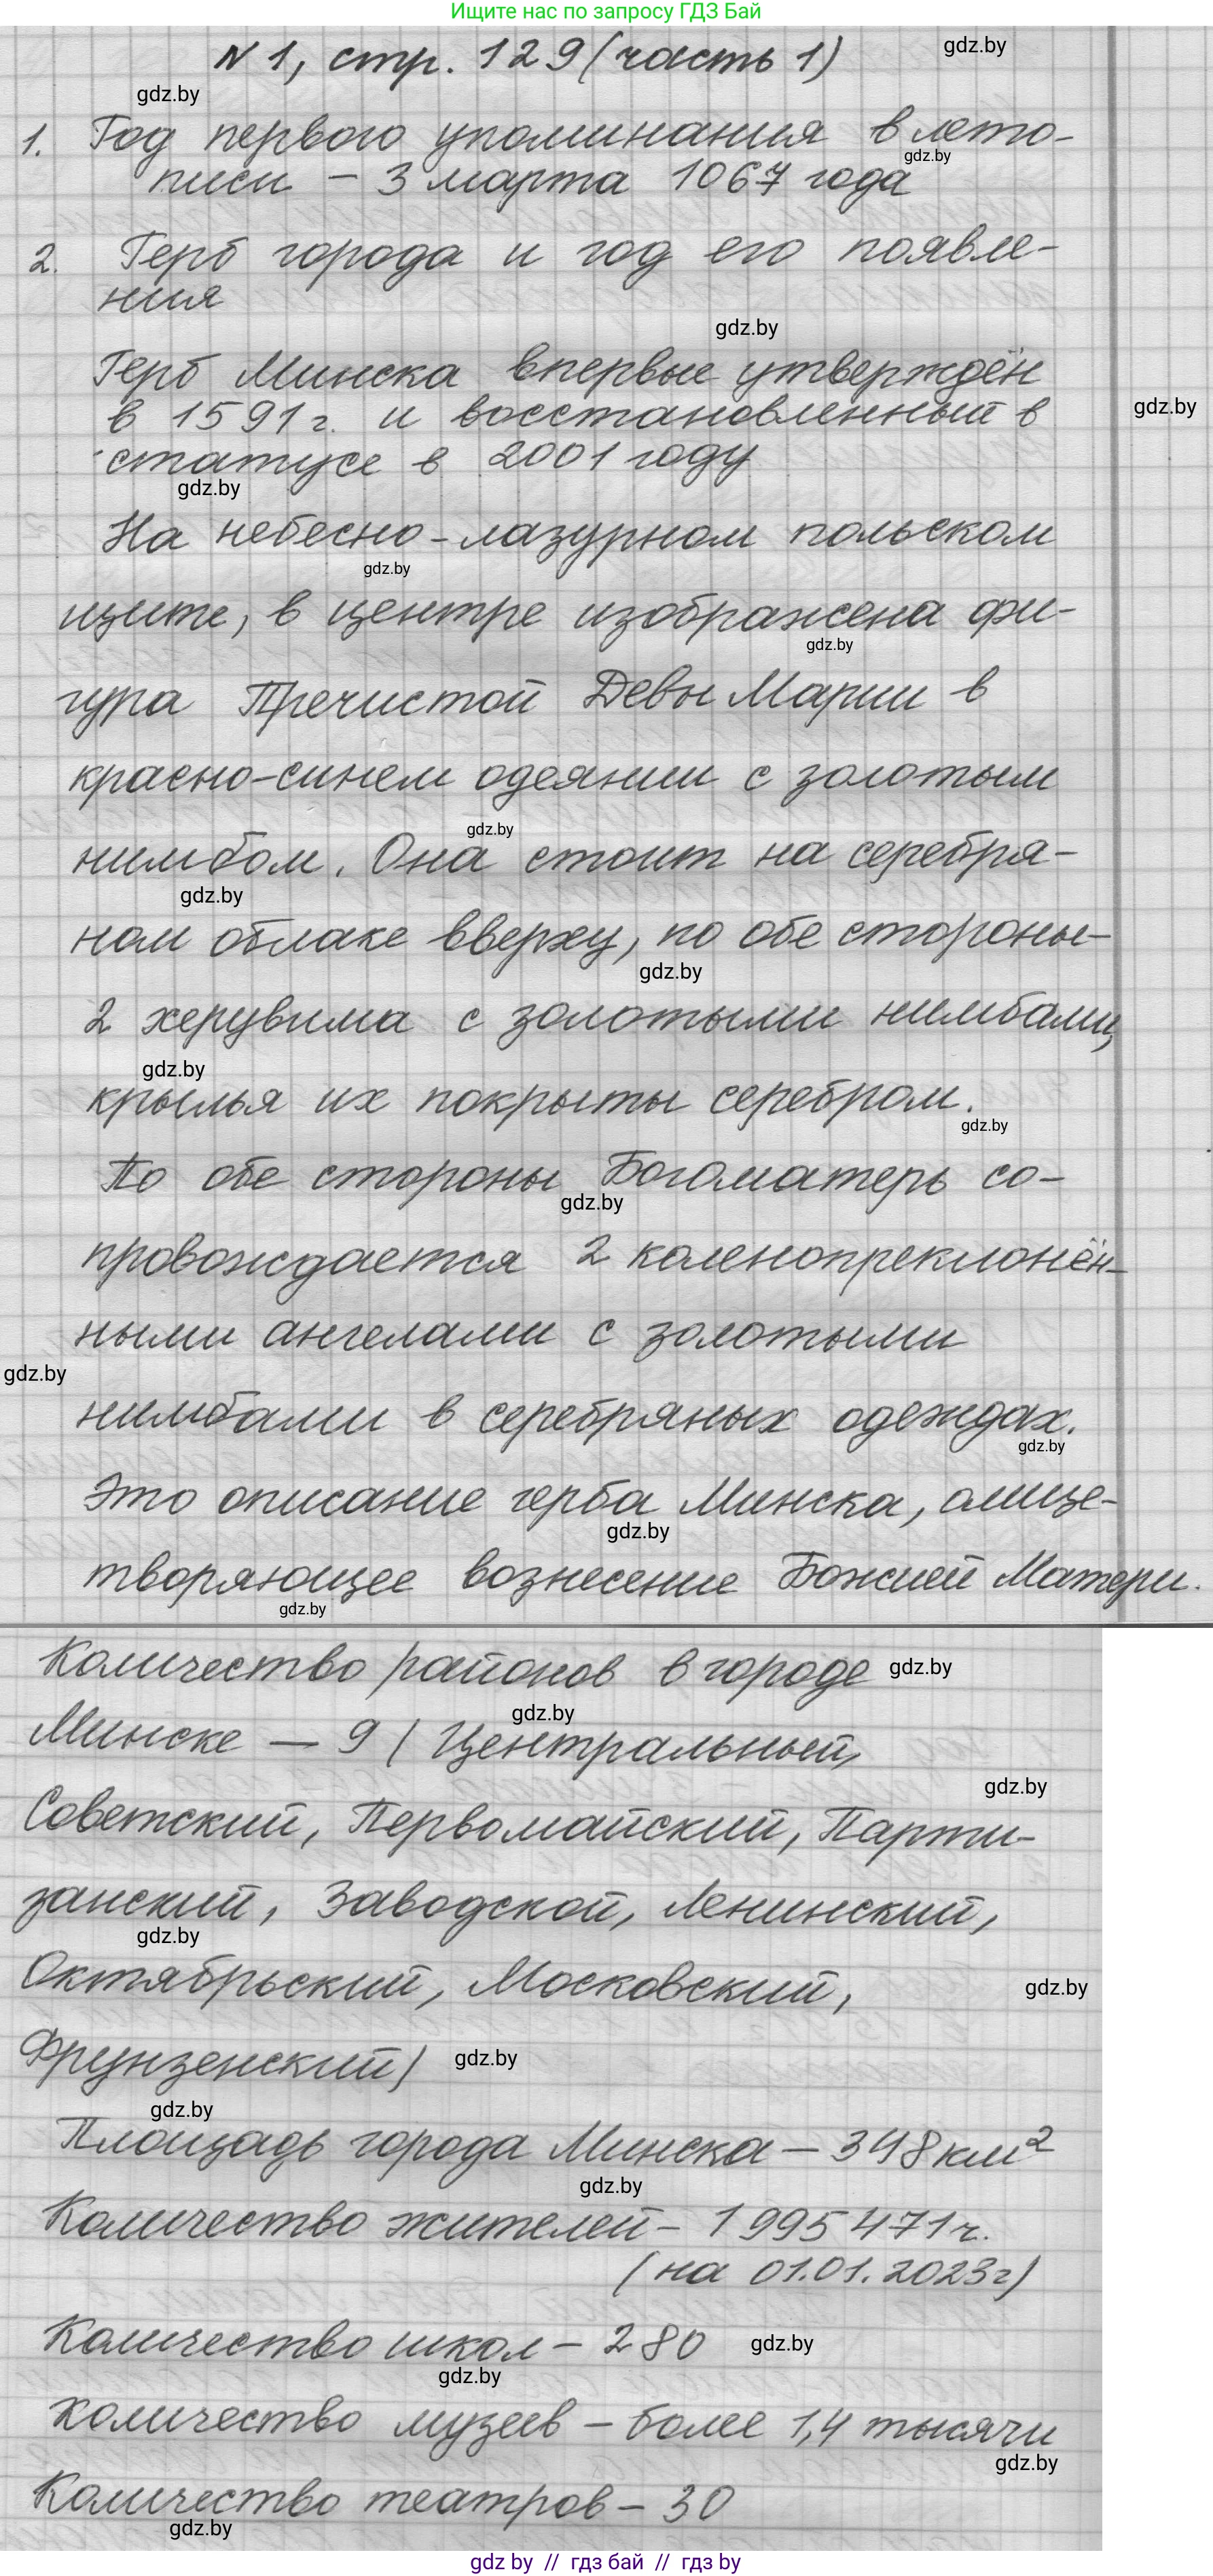 Ищите нас по запросу ГДЗ Бай
N 1, стр. 129 (часть 1)
gdz.by
gdz.by
1. Год первого упоминания в лето-
gdz.by
писи – 3 марта 1067 года
2. Герб города и год его появле-
ния
gdz.by
Герб Минска впервые утверждён
в 1591 г. и восстановленный в
gdz.by
статусе в 2001 году
gdz.by
На небесно-лазурном польском
gdz.by
щите, в центре изображена фи-
gdz.by
гура Пречистой Девы Марии в
красно-синем одеянии с золотым
gdz.by
нимбом. Она стоит на серебря-
gdz.by
ном облаке вверху, по обе стороны-
gdz.by
2 херувима с золотыми нимбами,
gdz.by
крылья их покрыты серебром.
gdz.by
По обе стороны Богоматерь со-
gdz.by
провождается 2 коленопреклонён-
ными ангелами с золотыми
gdz.by
нимбами в серебряных одеждах.
gdz.by
Это описание герба Минска, олице-
gdz.by
творяющее вознесение Божией Матери.
gdz.by
Количество районов в городе
gdz.by
gdz.by
Минске — 9 (Центральный,
gdz.by
Советский, Первомайский, Парти-
занский, Заводской, Ленинский,
gdz.by
Октябрьский, Московский,
gdz.by
Фрунзенский)
gdz.by
gdz.by
Площадь города Минска – 348 км²
gdz.by
Количество жителей – 1 995 471 ч.
(на 01.01.2023г)
Количество школ – 280
gdz.by
gdz.by
Количество музеев – более 1,4 тысячи
gdz.by
Количество театров – 30
gdz.by
gdz by // гдз бай // гдз by